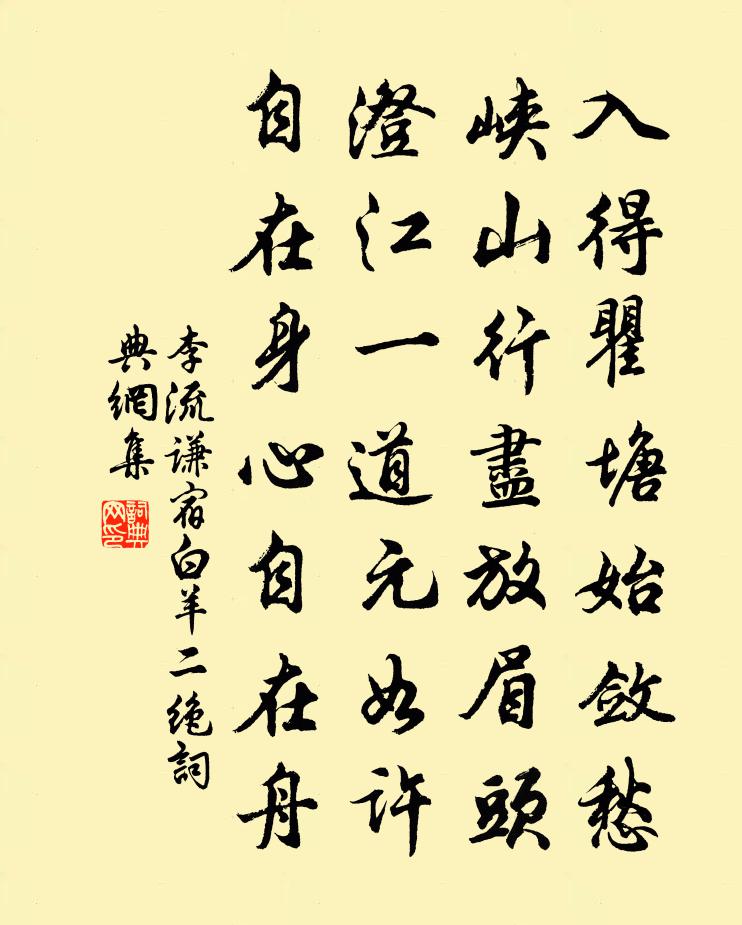 入得瞿塘始斂愁
峽山行盡放眉頭
澄江一道元如許
自在身心自在舟
李流謙宿白羊二絶詞
典網集
詞典網印